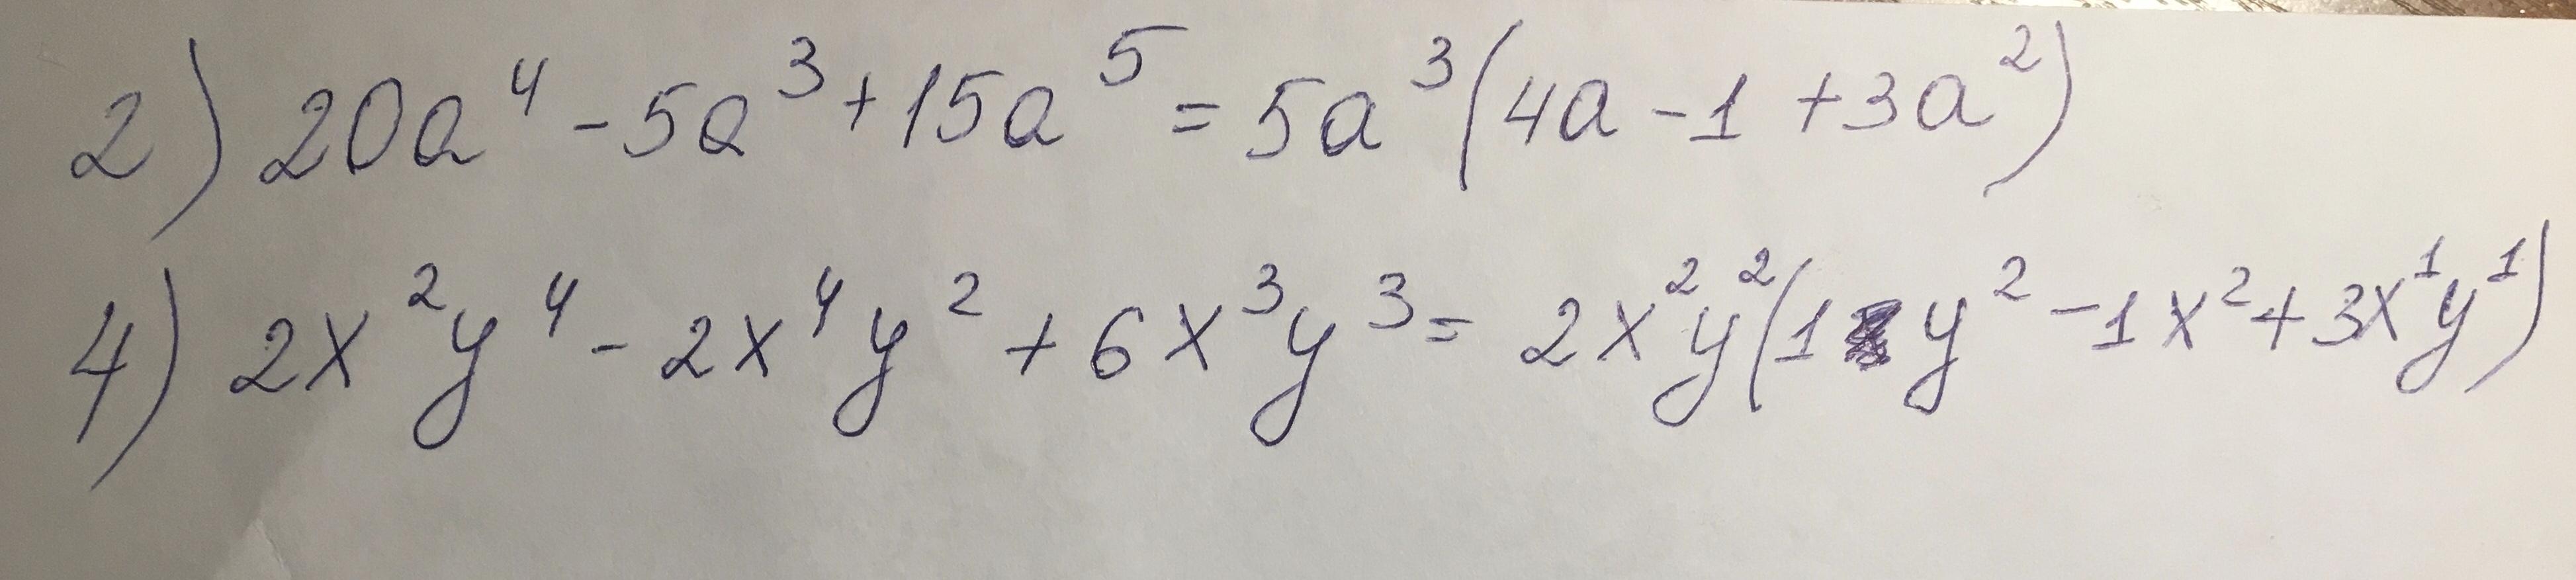 2) 20a⁴ - 5a³ + 15a⁵ = 5a³(4a - 1 + 3a²)
4) 2x²y⁴ - 2x⁴y² + 6x³y³ = 2x²y²(1y² - 1x² + 3x¹y¹)